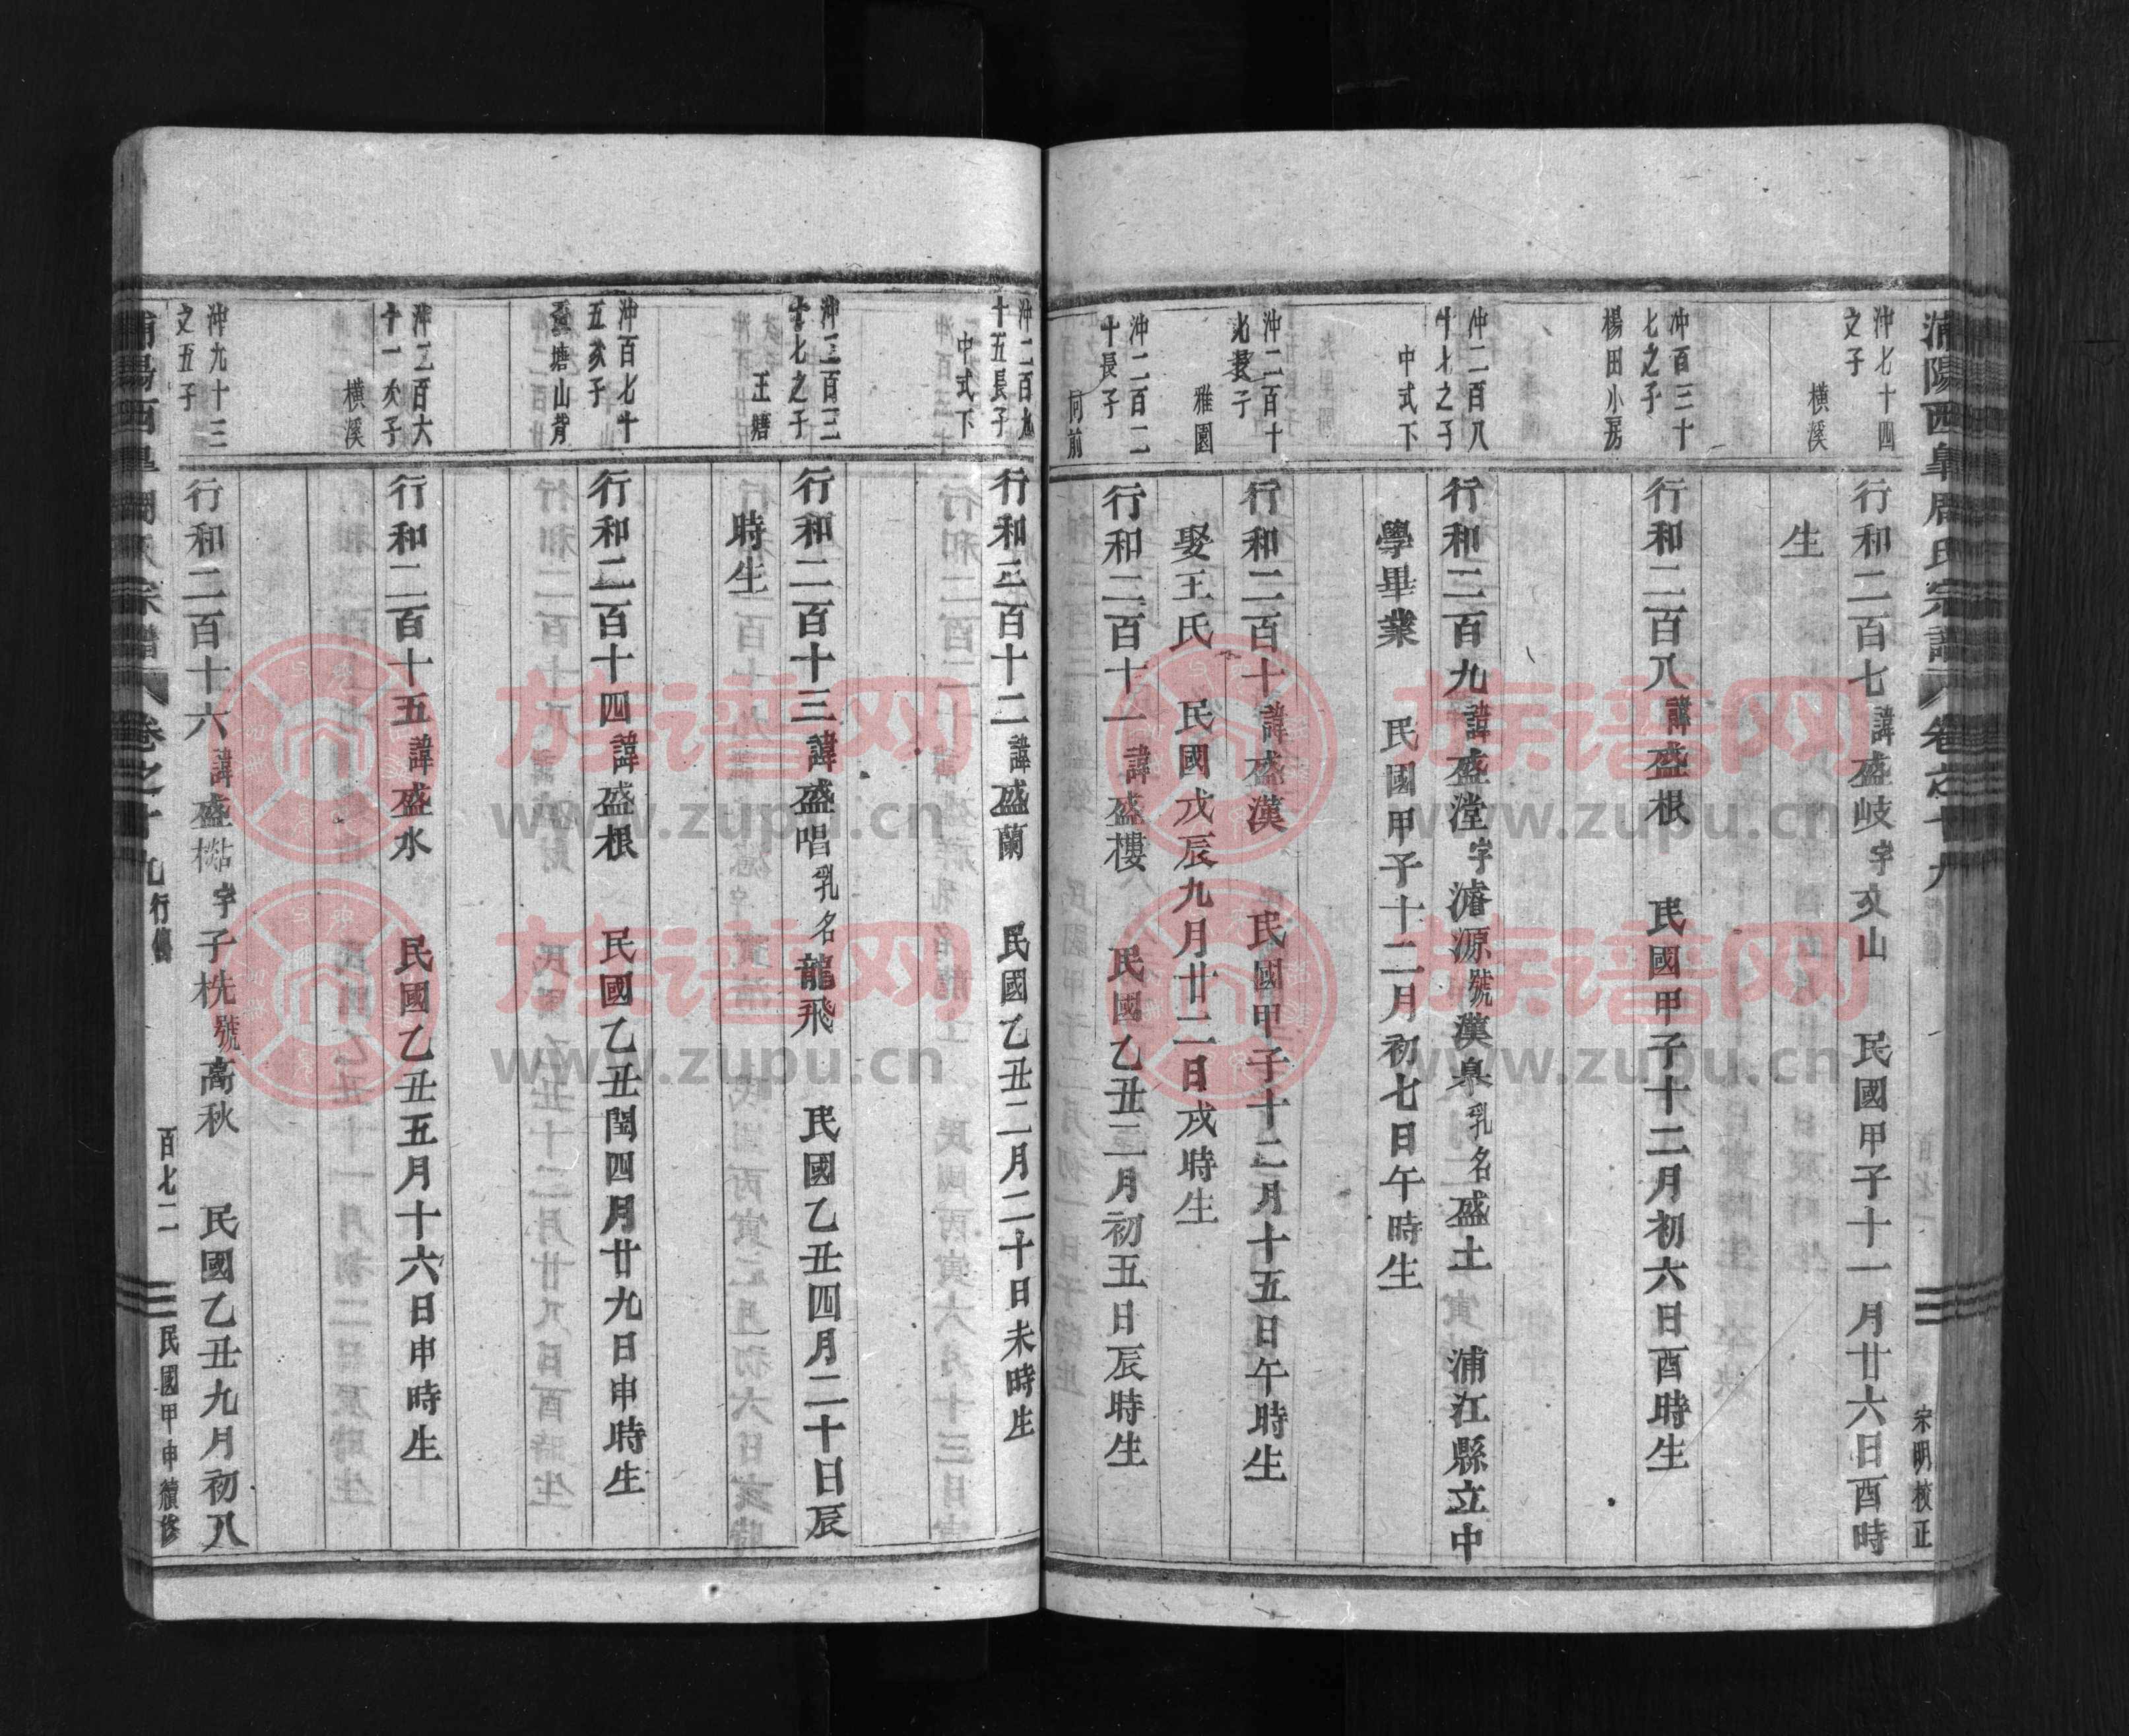 浦陽西皐周氏宗譜 卷之十九
宋明校正
沖七十四
之子
橫溪
行和二百七諱盛岐字文山 民國甲子十一月廿六日酉時
生
沖百三十
七之子
楊田小房
行和二百八諱盛根 民國甲子十二月初六日酉時生
沖二百八
十七之子
中式下
行和二百九諱盛漟字濬源號漢泉乳名盛土 浦江縣立中
學畢業 民國甲子十二月初七日午時生
沖二百十
長子
雅園
行和二百十諱盛漢 民國甲子十二月十五日午時生
娶王氏 民國戊辰九月廿二日戌時生
沖二百二
十長子
同前
行和二百十一諱盛樓 民國乙丑二月初五日辰時生
沖二百九
十五長子
中式下
行和二百十二諱盛蘭 民國乙丑二月二十日未時生
沖三百三
十七之子
王塘
行和二百十三諱盛唱乳名龍飛 民國乙丑四月二十日辰
時生
沖百七十
五次子
塘山背
行和二百十四諱盛根 民國乙丑閏四月廿九日申時生
沖二百六
十一次子
橫溪
行和二百十五諱盛水 民國乙丑五月十六日申時生
沖九十三
之五子
行和二百十六諱盛字子梘號高秋 民國乙丑九月初八
浦陽西皐周氏宗譜 卷之十九 行傳 百七二 民國甲申續修
族谱网
www.zupu.cn
族谱网
www.zupu.cn
族谱网
www.zupu.cn
族谱网
www.zupu.cn